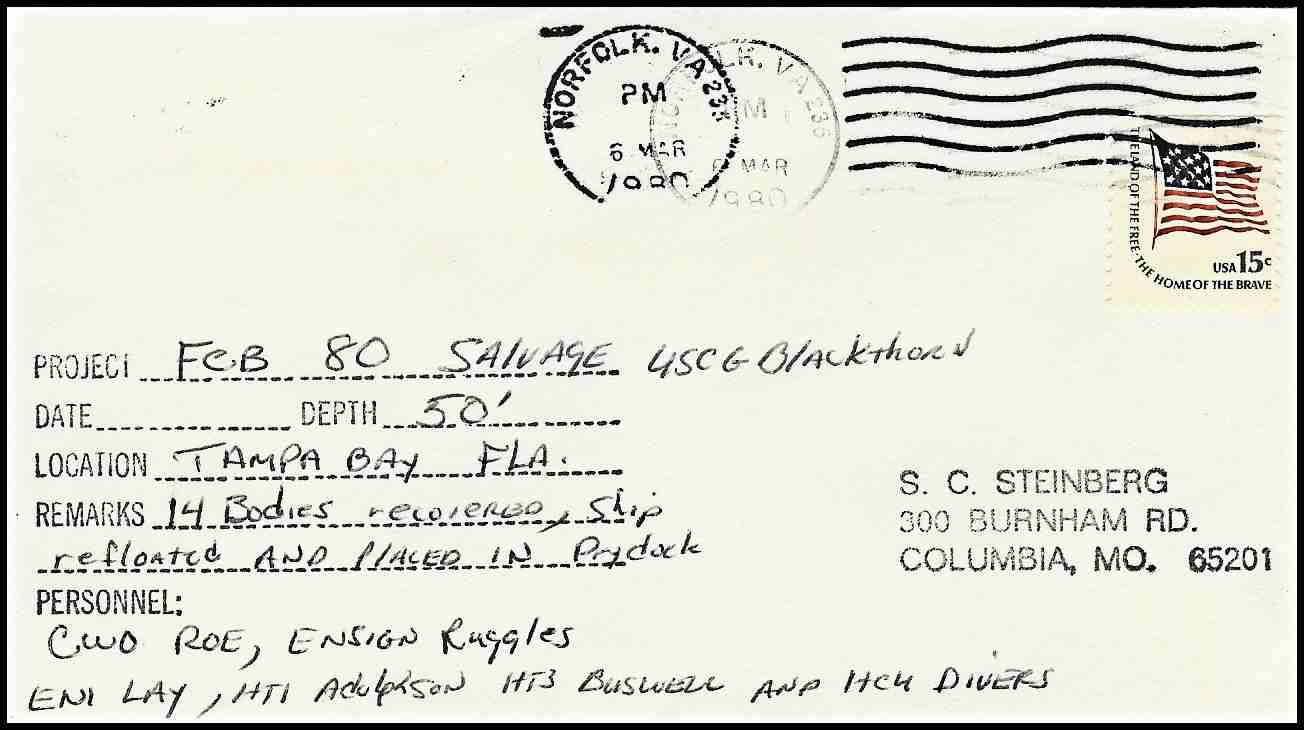 NORFOLK, VA 23
PM
6 MAR
1980
LK, VA 236
M
6 MAR
1980
THE LAND OF THE FREE · THE HOME OF THE BRAVE
USA 15c
PROJECT FCB 80 SALVAGE USCG Blackthorn
DATE DEPTH 50'
LOCATION TAMPA BAY FLA.
REMARKS 14 Bodies recovered, Ship
refloated AND PLACED IN Drydock
PERSONNEL:
CWO ROE, ENSIGN Ruggles
EN1 LAY, HT1 Adolphson HT3 BUSWELL AND HCU DIVERS
S. C. STEINBERG
300 BURNHAM RD.
COLUMBIA, MO. 65201